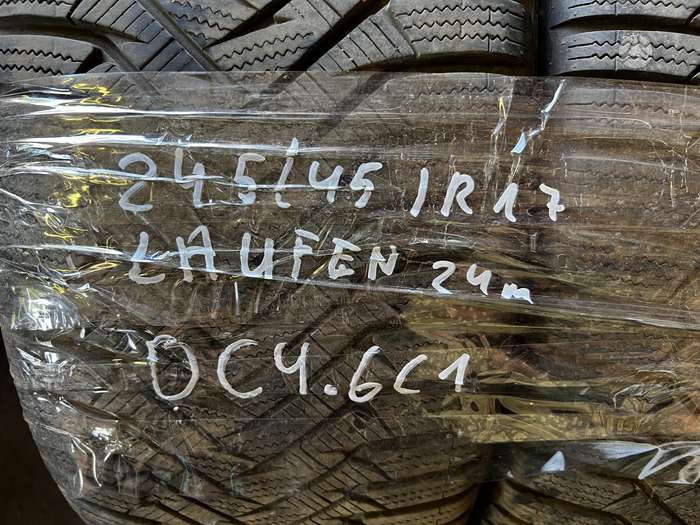 245/45/R17
LAUFEN 24m
OC4.6C1